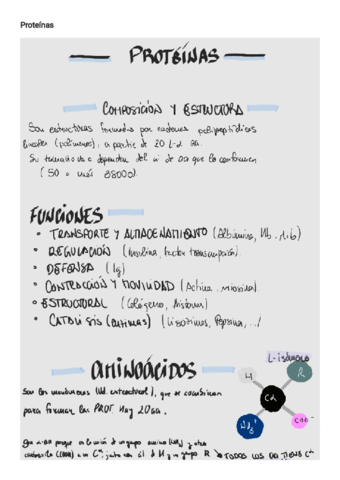 Proteínas
PROTEÍNAS
COMPOSICIÓN Y ESTRUCTURA
Son estructuras formadas por cadenas polipeptídicas
lineales (polímeros), a partir de 20 L-α aa.
Su tamaño va a depender del nº de aa que la conforman
(50 o más
FUNCIONES
• TRANSPORTE Y ALMACENAMIENTO (Albúmina, Hb
• REGULACIÓN (Insulina, factor transcripción)
• DEFENSA (Ig)
• CONTRACCIÓN Y MOVILIDAD (Actina, miosina)
• ESTRUCTURAL (Colágeno, histonas)
• CATÁLISIS (enzimas) (Lisozimas, Pepsina, ...)
AMINOÁCIDOS
L-isómero
H
R
Cα
Son los monómeros (Ud. estructural), que se combinan
para formar las PROT. Hay 20 aa.
NH3+
COO-
un grupo amino (NH2) y otro
carboxilo (COOH) a un Cα, junto con
H y un grupo R → TODOS LOS aa TIENEN Cα